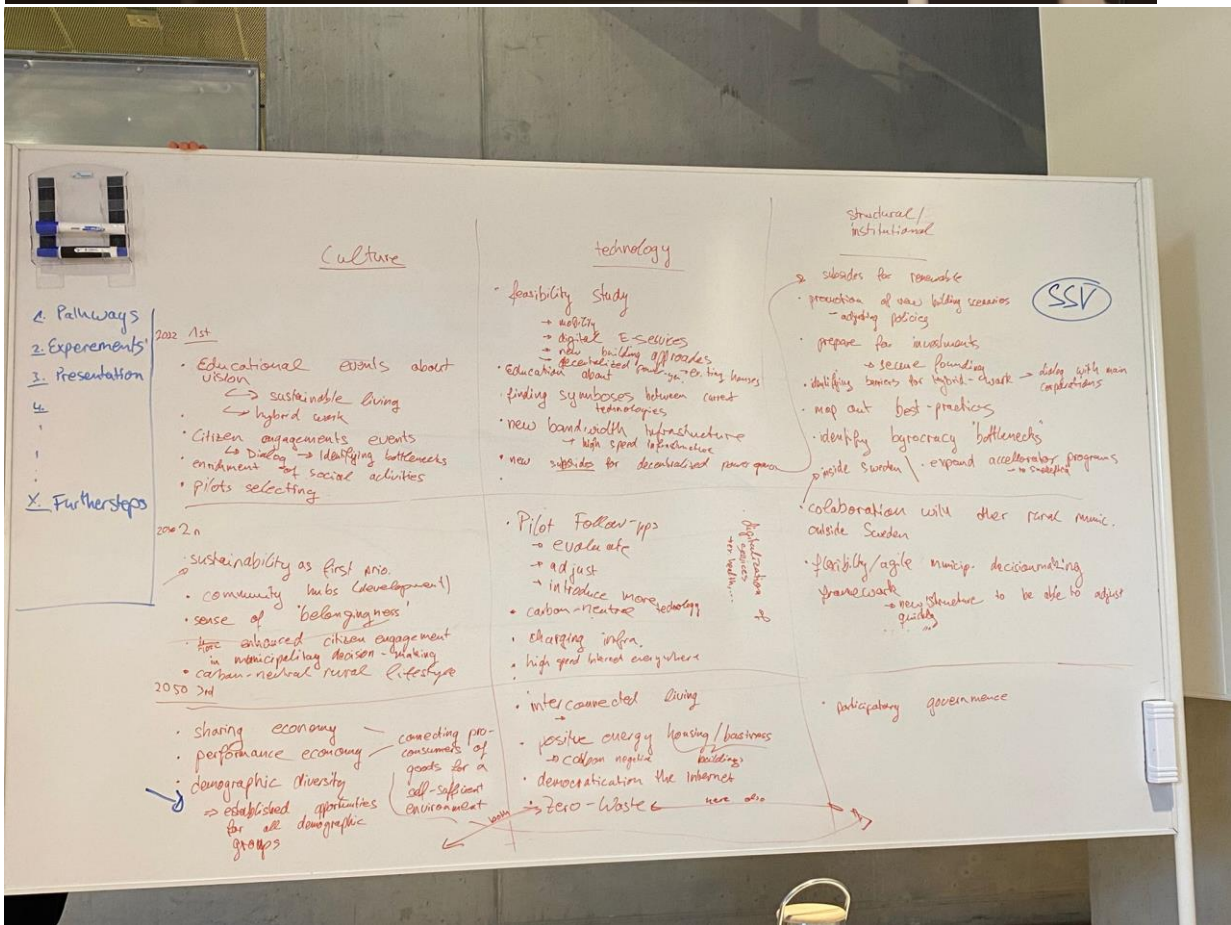 1. Pathways
2. Experements
3. Presentation
4.
X. Furthersteps
SSV
Culture
2022 1st
• Educational events about
vision
↳ sustainable living
↳ hybrid work
• Citizen engagements events
↳ Dialog → Identifying bottlenecks
• enrichment of social activities
• pilots selecting
2n
• sustainability as first prio.
• community hubs (development)
• sense of 'belongingness'
• enhanced citizen engagement
in municipality decision-making
• carbon-neutral rural lifestyle
2050 3rd
• sharing economy
• performance economy
conecting pro-
consumers of
goods for a
self-sufficient
environment
• demographic diversity
⇒ established oportunities
for all demographic
groups
technology
• feasibility study
→ mobility
→ digital E-services
→ new building approaches
→ decentralized
• Education about
existing houses
• finding symbioses between current
technologies
• new bandwidth infrastructure
→ high speed infrastructure
• new subsides for decentralized power
• Pilot Follow-ups
→ evaluate
→ adjust
→ introduce more
technology
• carbon-neutral
• charging infra.
• high speed internet everywhere
digitalization of
services
• interconnected living
→
• positive energy housing/business
buildings
→ carbon negative
• democratication the Internet
→ Zero-Waste
here also
structural/
institutional
subsides for renewable
• promotion of new bilding scenarios
- adjusting policies
• prepare for investments
→ secure founding
• identifying barriers for hybrid-work → dialog with main
corporations
• map out best-practices
• identify byrocracy 'bottlenecks'
inside Sweden
• expand accellorator programs
• colaboration with other rural munic.
outside Sweden
• flexibilty/agile municip. decisionmaking
framework
→ new structure to be able to adjust
quickly
• participatory governence